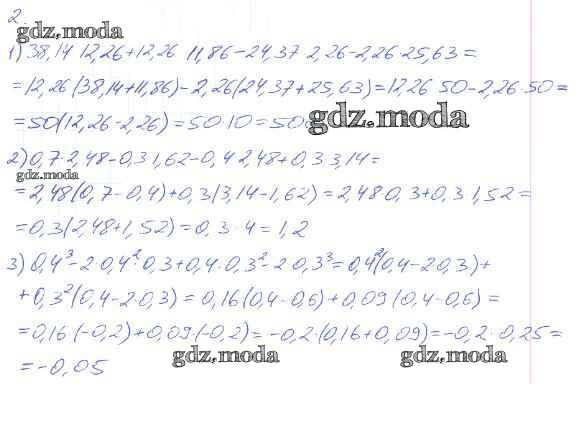 2.
gdz.moda
1) 38,14 12,26+12,26 11,86-24,37·2,26-2,26·25,63=
=12,26(38,14+11,86)-2,26(24,37+25,63)=12,26 50-2,26·50=
=50(12,26-2,26)=50·10=500
gdz.moda
2) 0,7·2,48-0,3 1,62-0,4 2,48+0,3 3,14=
gdz.moda
=2,48(0,7-0,4)+0,3(3,14-1,62)=2,48 0,3+0,3 1,52=
=0,3(2,48+1,52)=0,3·4=1,2
3) 0,4³-2·0,4²·0,3+0,4·0,3²-2·0,3³=0,4²(0,4-2·0,3)+
+0,3²(0,4-2·0,3)=0,16(0,4-0,6)+0,09(0,4-0,6)=
=0,16(-0,2)+0,09·(-0,2)=-0,2·(0,16+0,09)=-0,2·0,25=
=-0,05
gdz.moda
gdz.moda